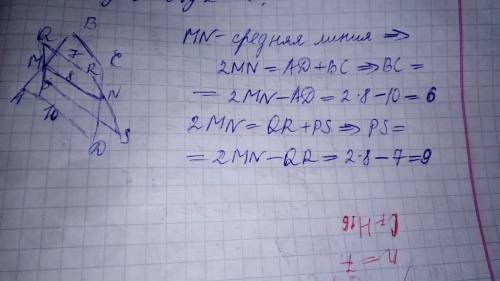 MN - средняя линия ⇒
2MN = AD + BC ⇒ BC =
= 2MN - AD = 2·8 - 10 = 6
2MN = QR + PS ⇒ PS =
= 2MN - QR = 2·8 - 7 = 9
B
Q
7
C
M
R
8
N
A
10
D
S
n = 7
C7H16